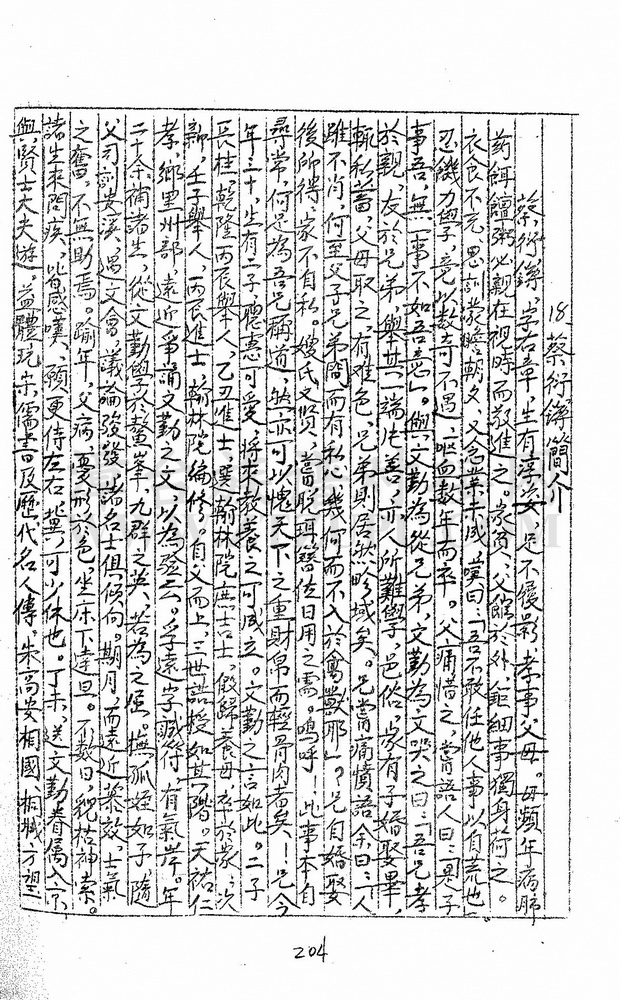 18蔡衍鎔簡介
蔡衍鎔，字右章，生有淳姿，足不履影，孝事父母。母頻年病肺，
药餌饘粥必親在視時而敬進之。家貧，父館於外，鉅細事獨身荷之。
衣食不充，思 蒙瞻朝夕，又念業未成，嘆曰：「吾不敢任他人事以自荒也」
忍饑力學，竟以数奇不遇，嘔血数年而卒。父痛惜之，嘗語人曰：「是子
事吾，無一事不如吾意」。與文勤為從兄弟，文勤為文哭之曰：「吾兄孝
於親，友於兄弟，舉其一端片善，亦人所難學，邑俗，家有子婚娶畢，
輒私蓄，父母取之，有难色，兄弟則居然畛域矣。兄嘗痛憤語余曰：「人
雖不肖，何至父子兄弟間而有私心，幾何而不入於禽獸耶」。兄自婚娶
後所得，家不自私。嫂氏又賢，嘗脫珥簪佐日用之需。嗚呼！此事本自
尋常，何足為吾兄稱道，然亦可以愧天下之重財帛而輕骨肉者矣！兄今
年三十，生有二子，聰憲可愛，将來教養之可成立。文勤之言如此。二子
長桂，乾隆丙辰舉人，乙丑進士，選翰林院庶吉士，假歸養母，卒於家；次
新，壬子舉人，丙辰進士，翰林院編修。自父而上，三世誥授如其階。天祐仁
孝，鄉里州部，遠近爭誦文勤之文，以為發云。孚遠字職符，有氣岸。年
二十余，補諸生，從文勤學於鰲峯，九群之英，若為之傴，撫孤姪如子，隨
父司訓安溪，遇文會，議論發發，諸名士俱傾向。期月，而遠近 效，士氣
之奮，不無助焉。踰年，父病，憂形於色，坐床下達旦。不数日，貌枯神索。
諸生來問疾，皆感嘆，願更侍左右，冀可少休也。丁未，送文勤眷属入京，
與賢士大夫遊，益體玩宋儒書及歷代名人傳，朱高安相國、桐城方望
204